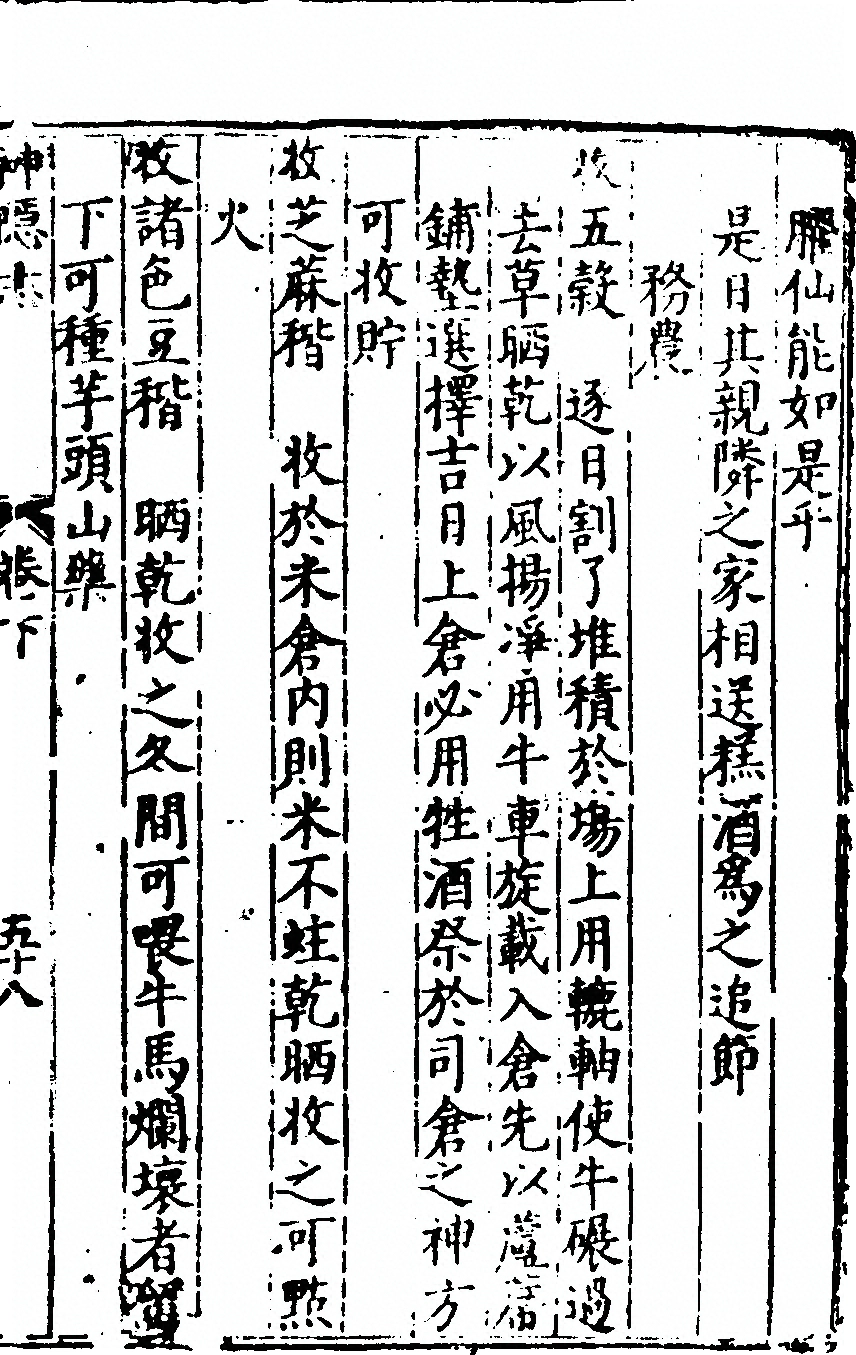 臞仙能如是乎
是日其親隣之家相送糕酒爲之追節
務農
收五穀　逐日割了堆積於場上用轆軸使牛碾過
去草晒乾以風揚淨用牛車旋載入倉先以蘆席
鋪墊選擇吉日上倉必用牲酒祭於司倉之神方
可收貯
收芝蔴稭　收於米倉内則米不蛀乾晒收之可點
火
收諸色豆稭　晒乾收之冬間可喂牛馬爛壞者
下可種芋頭山藥
神隱
卷下
五十八